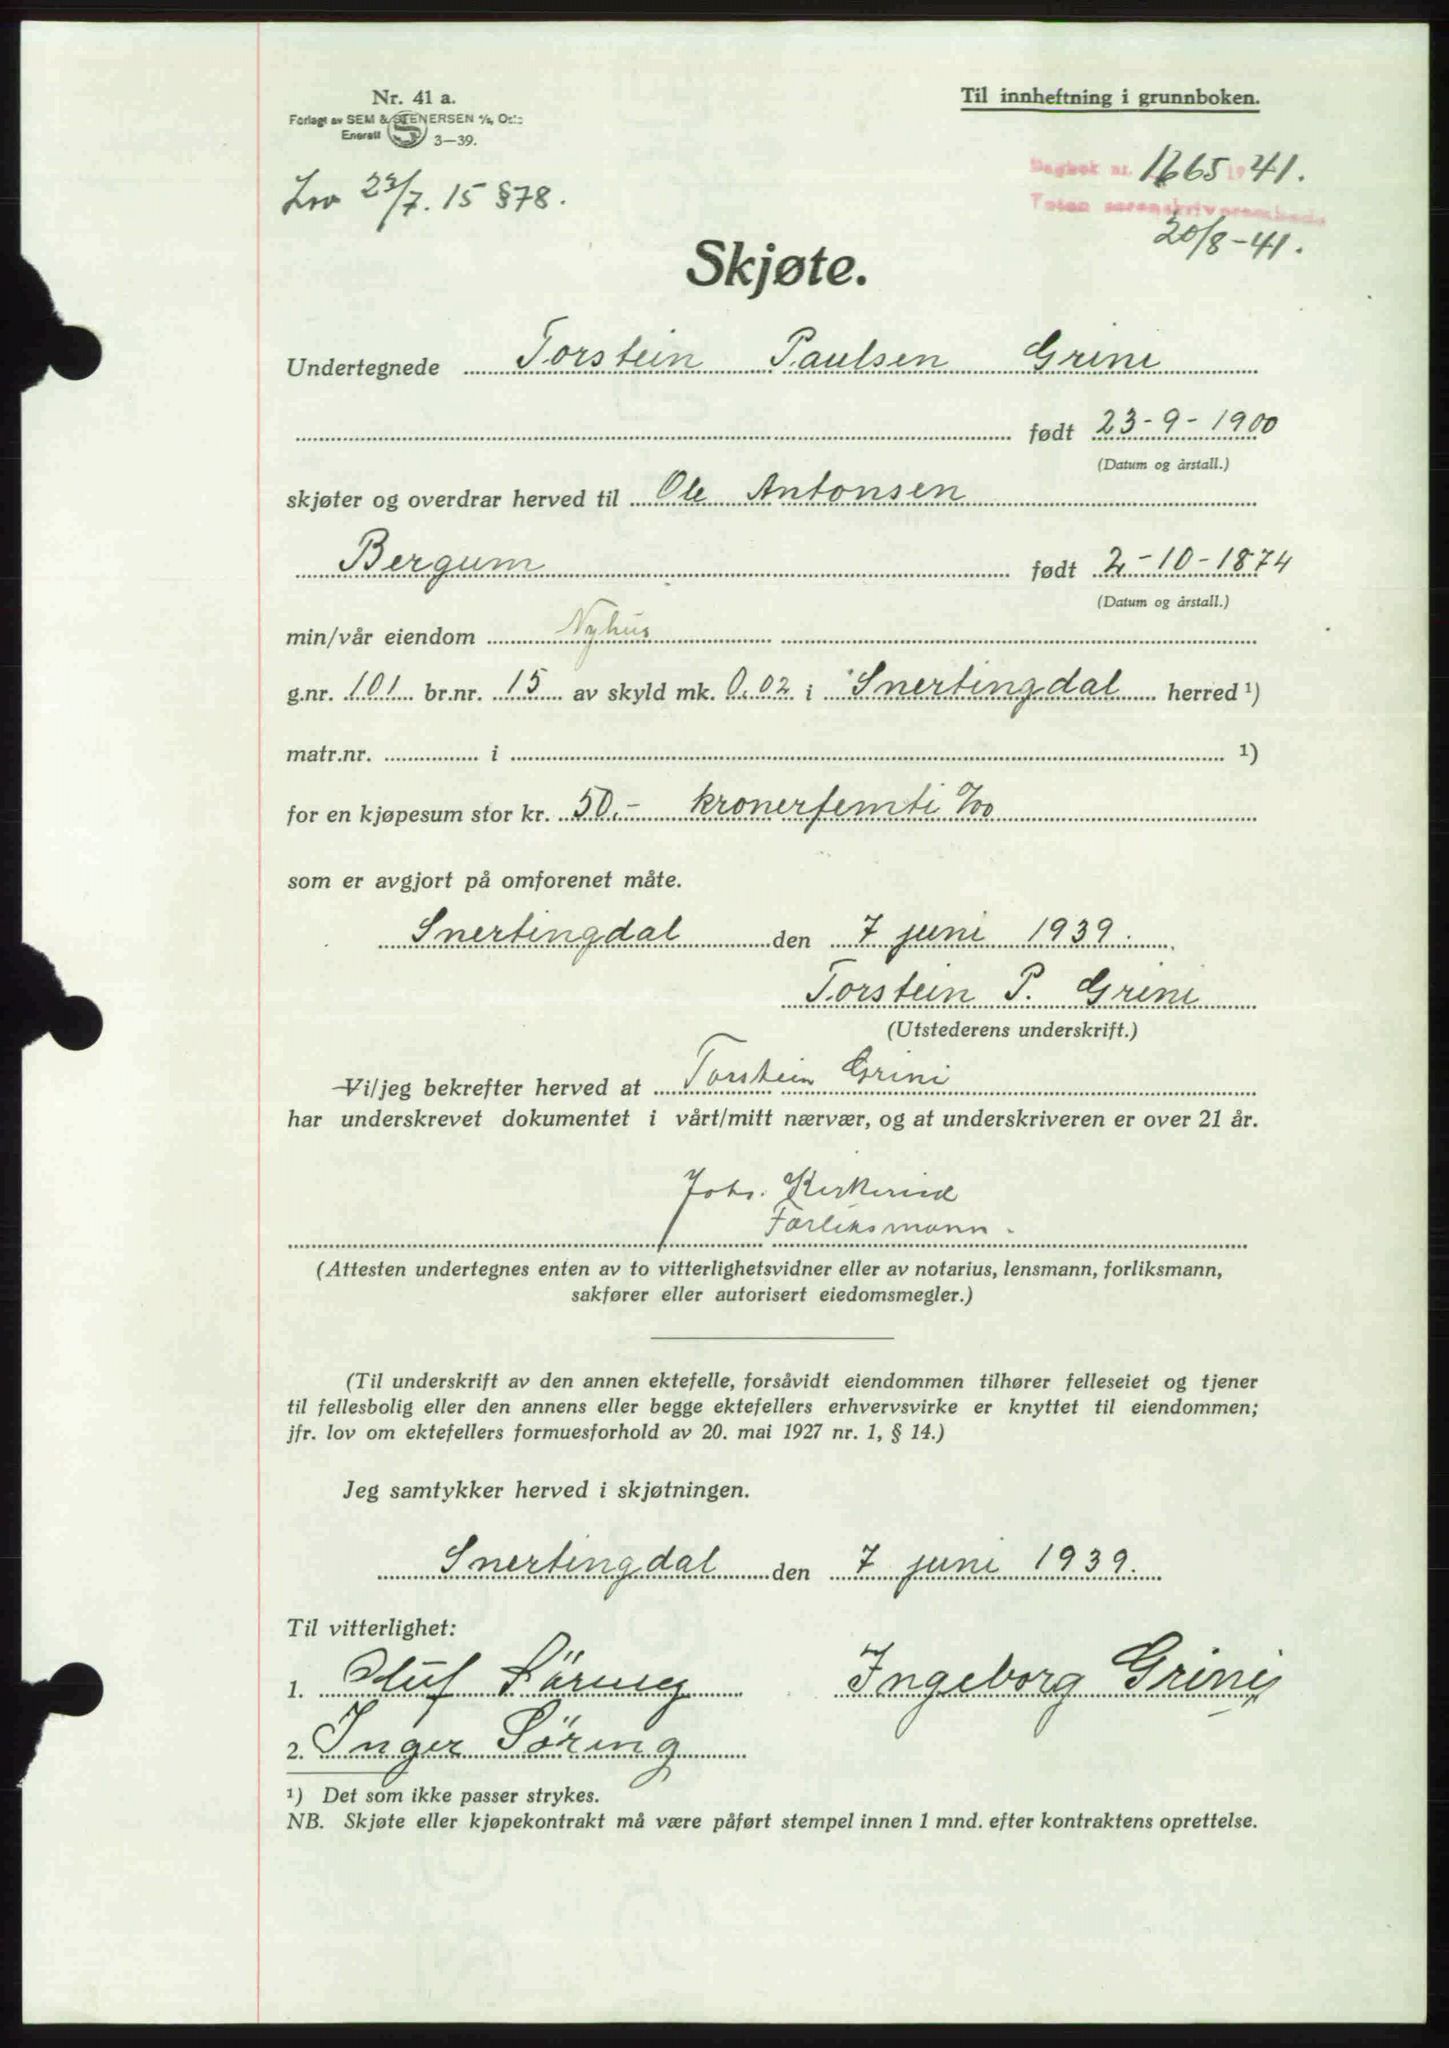 Nr. 41 a.
Til innheftning i grunnboken.
Forlagt av SEM & STENERSEN A/S, Oslo
Enerett S 3—39.
Lov 23/7. 15 § 78.
Dagbok nr. 1665 1941.
Toten sorenskriverembede
20/8-41.
Skjøte.
Undertegnede Torstein Paulsen Grini
født 23-9-1900
(Datum og årstall.)
skjøter og overdrar herved til Ole Antonsen
Bergum født 2-10-1874
(Datum og årstall.)
min/vår eiendom Nyhus
g.nr. 101 br.nr. 15 av skyld mk. 0,02 i Snertingdal herred ¹)
matr.nr. i ¹)
for en kjøpesum stor kr. 50,- kronerfemti %00
som er avgjort på omforenet måte.
Snertingdal den 7 juni 1939.
Torstein P. Grini
(Utstederens underskrift.)
Vi/jeg bekrefter herved at Torstein Grini
har underskrevet dokumentet i vårt/mitt nærvær, og at underskriveren er over 21 år.
Johs. Kirkerud
Forliksmann.
(Attesten undertegnes enten av to vitterlighetsvidner eller av notarius, lensmann, forliksmann,
sakfører eller autorisert eiedomsmegler.)
(Til underskrift av den annen ektefelle, forsåvidt eiendommen tilhører felleseiet og tjener
til fellesbolig eller den annens eller begge ektefellers erhvervsvirke er knyttet til eiendommen;
jfr. lov om ektefellers formuesforhold av 20. mai 1927 nr. 1, § 14.)
Jeg samtykker herved i skjøtningen.
Snertingdal den 7 juni 1939.
Til vitterlighet:
1. Oluf Söring Ingeborg Grini
2. Inger Söring
¹) Det som ikke passer strykes.
NB. Skjøte eller kjøpekontrakt må være påført stempel innen 1 mnd. efter kontraktens oprettelse.